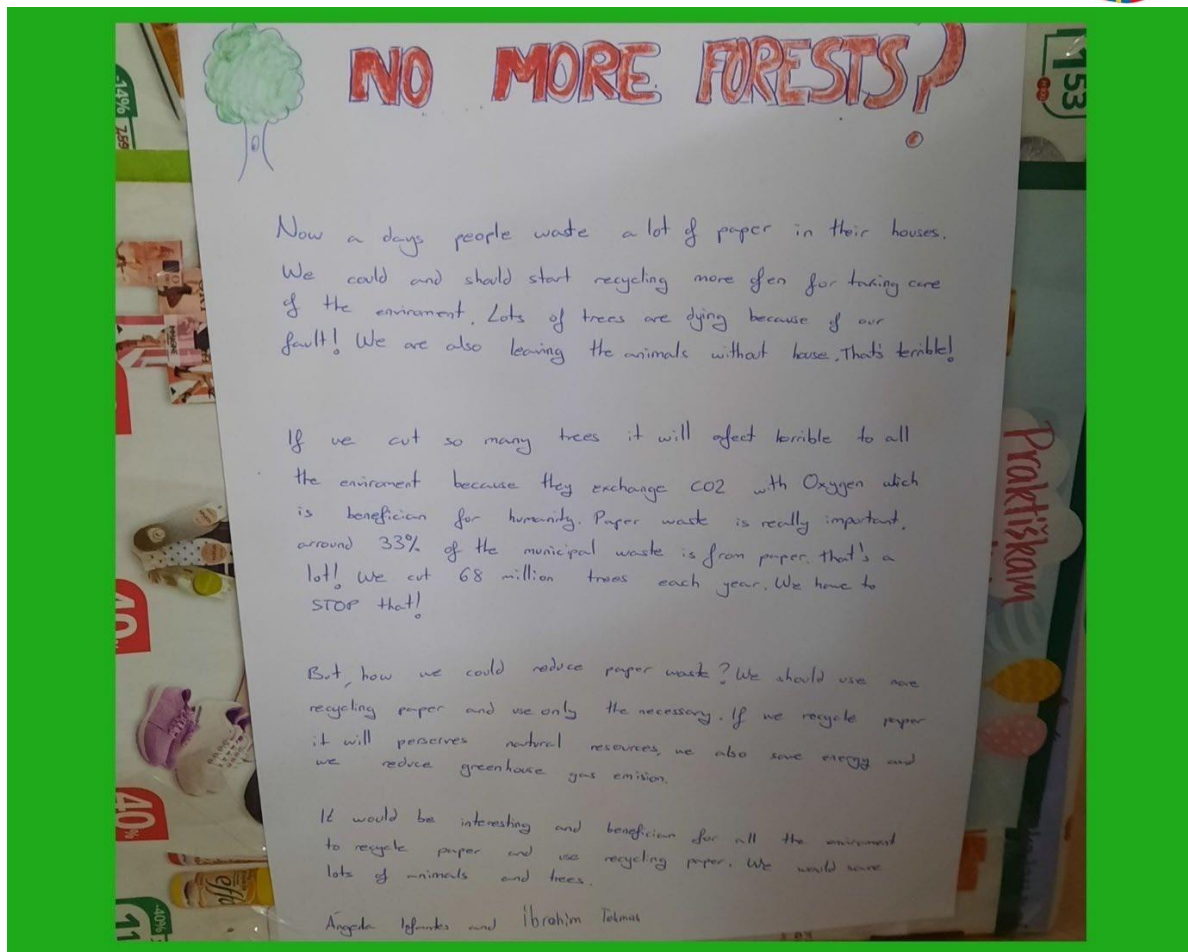 NO MORE FORESTS?
Now a days people waste a lot of paper in their houses.
We could and should start recycling more ofen for taking care
of the enviroment. Lots of trees are dying because of our
fault! We are also leaving the animals without house. That's terrible!
If we cut so many trees it will afect terrible to all
the enviroment because they exchange CO2 with Oxygen wich
is benefician for humanity. Paper waste is really important,
arround 33% of the municipal waste is from paper. that's a
lot! We cut 68 million trees each year. We have to
STOP that!
But, how we could reduce paper waste? We should use more
recycling paper and use only the necessary. If we recycle paper
it will perserves natural resources, we also save energy and
we reduce greenhouse gas emision.
It would be interesting and benefician for all the enviroment
to recycle paper and use recycling paper. We would save
lots of animals and trees.
Ángeda and İbrahim
-14% 7.59
1 53
Praktiškam
40%
40%
effo
-40%
11